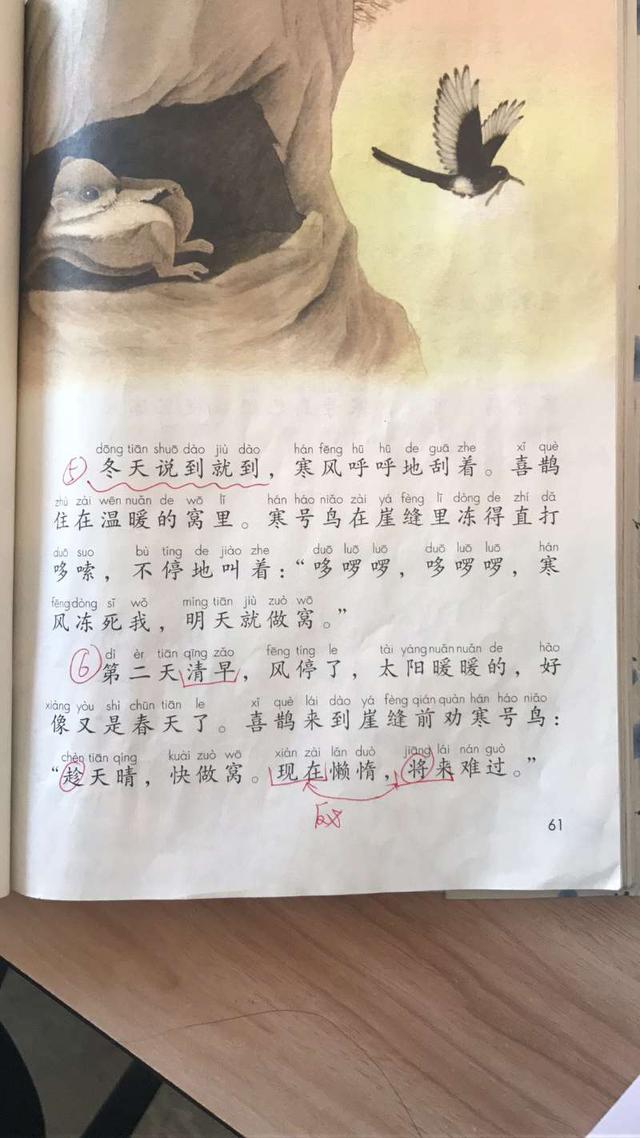 dōng tiān shuō dào jiù dào hán fēng hū hū de guā zhe xǐ què
⑤ 冬天说到就到，寒风呼呼地刮着。喜鹊
zhù zài wēn nuǎn de wō lǐ hán háo niǎo zài yá fèng lǐ dòng de zhí dǎ
住在温暖的窝里。寒号鸟在崖缝里冻得直打
duō suo bù tíng de jiào zhe duō luō luō duō luō luō hán
哆嗦，不停地叫着：“哆啰啰，哆啰啰，寒
fēng dòng sǐ wǒ míng tiān jiù zuò wō
风冻死我，明天就做窝。”
dì èr tiān qīng zǎo fēng tíng le tài yáng nuǎn nuǎn de hǎo
⑥ 第二天清早，风停了，太阳暖暖的，好
xiàng yòu shì chūn tiān le xǐ què lái dào yá fèng qián quàn hán háo niǎo
像又是春天了。喜鹊来到崖缝前劝寒号鸟：
chèn tiān qíng kuài zuò wō xiàn zài lǎn duò jiāng lái nán guò
“趁天晴，快做窝。现在懒惰，将来难过。”
61